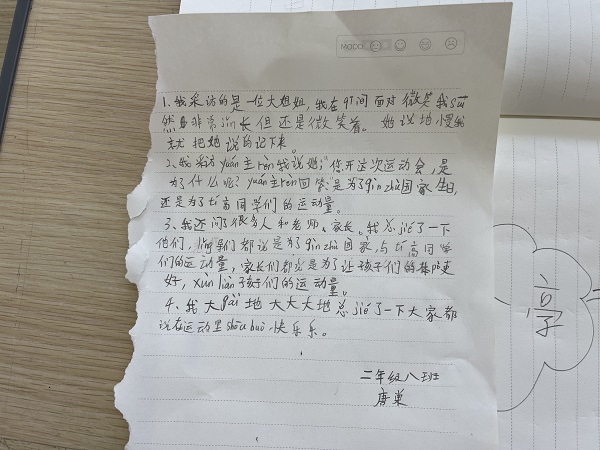 MOOD
1、我采访的是一位大姐姐，我在 时间 面对 微笑 我 suī
然 非常 紧长但还是微笑着。她说地慢我
就把她说的记下来。
2、我采访 yuán 主 rén 我说她:"您开这次运动会，是
为了什么呢? yuán 主 rén 回答:"是为了qìn zhù国家生日,
还是为了 tí 高同学们的运动量。
3、我还问了很多人和老师、家长。我总jié了一下
他们, 们都说是为了qìn zhù国家与 tí高同学
们的运动量，家长们都说是为了让孩子们的 更
好，xùn liàn 孩子们的运动量。
4、我大 地 大大大地总jié了一下大家都
说在运动里shōu huò 快乐乐。
二年级八班
唐巢